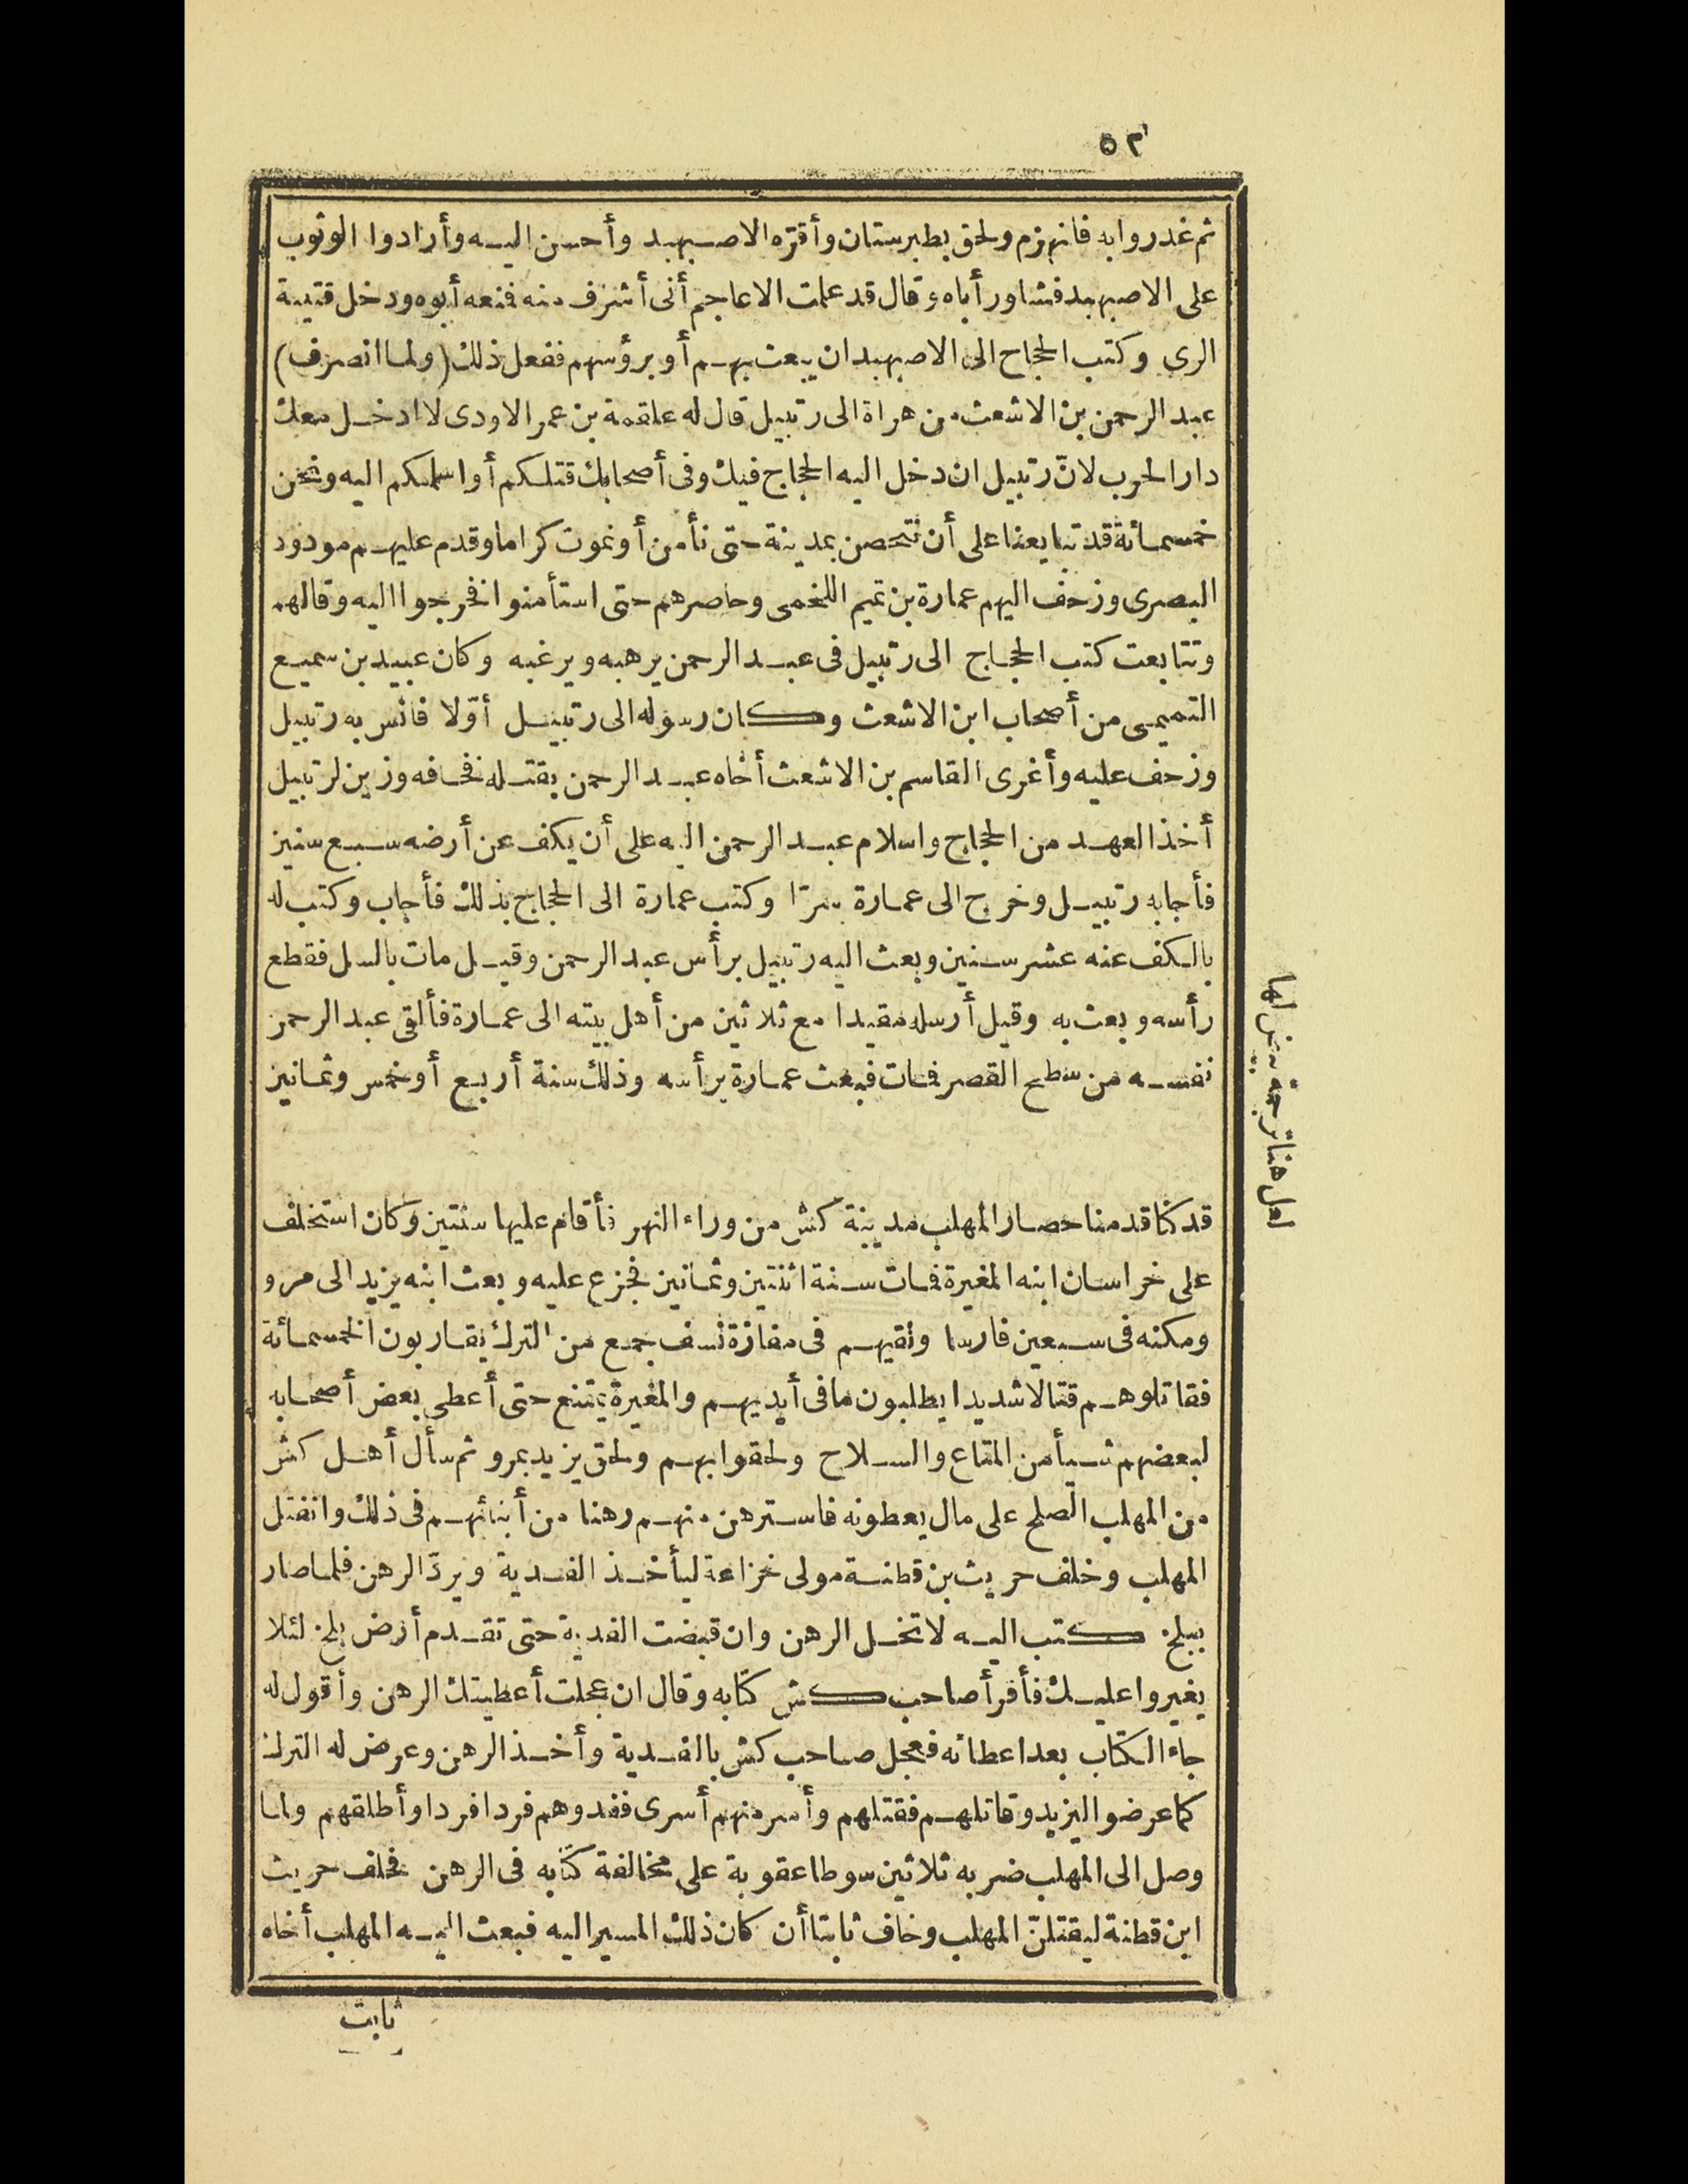 ٥٢
ثم غدروا به فانهزم ولحق بطبرستان وأقرّه الاصبهبد وأحسن اليه وأرادوا الوثوب
على الاصبهبد فشاور أباه وقال قد علمت الاعاجم أنى أشرف منه فنعه أبوه ودخل قتيبة
الرى وكتب الحجاح الى الاصبهبد ان يبعث بهم أو برؤسهم ففعل ذلك (ولما انصرف)
عبد الرحمن بن الاشعث من هراة الى رتبيل قال له علقمة بن عمر الاودى لا ادخل معك
دار الحرب لانّ رتبيل ان دخل اليه الحجاج فيك وفى أصحابك قتلكم أو اسلمكم اليه ونحن
خمسمائة قد تبايعنا على أن نتحصن بمدينة حتى نأمن أو نموت كراما وقدم عليهم مودود
البصرى وزحف اليهم عمارة بن تميم اللخمى وحاصرهم حتى استأمنوا فخرجوا اليه وقالهم
وتتابعت كتب الحجاج الى رتبيل فى عبد الرحمن يرهبه ويرغبه وكان عبيد بن سميع
التميمى من أصحاب ابن الاشعث وكان رسوله الى رتبيل أوّلا فانس به رتبيل
وزحف عليه وأغرى القاسم بن الاشعث أخاه عبد الرحمن بقتله فخافه وزين لرتبيل
أخذ العهد من الحجاج واسلام عبد الرحمن اليه على أن يكف عن أرضه سبع سنين
فأجابه رتبيل وخرج الى عمارة سرّا وكتب عمارة الى الحجاج بذلك فأجاب وكتب له
بالكف عنه عشر سنين وبعث اليه رتبيل برأس عبد الرحمن وقيل مات بالسل فقطع
رأسه وبعث به وقيل أرسله مقيدا مع ثلاثين من أهل بيته الى عمارة فألقى عبد الرحمن
نفسه من سطح القصر فمات فبعث عمارة برأسه وذلك سنة أربع أو خمس وثمانين
لعل هنا ترجمة بيض لها
قد كنا قدمنا حصار المهلب مدينة كش من وراء النهر فأقام عليها سنتين وكان استخلف
على خراسان ابنه المغيرة فمات سنة اثنتين وثمانين فجزع عليه وبعث ابنه يزيد الى مرو
ومكنه فى سبعين فارسا ولقيهم فى مفازة نسف جمع من الترك يقاربون الخمسمائة
فقاتلوهم قتالا شديدا يطلبون ما فى أيديهم والمغيرة يمتنع حتى أعطى بعض أصحابه
لبعضهم شيأ من المتاع والسلاح ولحقوا بهم ولحق يزيد بمرو ثم سأل أهل كش
من المهلب الصلح على مال يعطونه فاسترهن منهم رهنا من أبنائهم فى ذلك وانفتل
المهلب وخلف حريث بن قطنة مولى خزاعة ليأخذ الفدية ويردّ الرهن فلما صار
ببلخ كتب اليه لا تخل الرهن وان قبضت الفدية حتى تقدم أرض بلخ لئلا
يغيروا عليك فأقرأ صاحب كش كتابه وقال ان عجلت أعطيتك الرهن وأقول له
جاء الكتاب بعد اعطائه فعجل صاحب كش بالفدية وأخذ الرهن وعرض له الترك
كما عرضوا ليزيد وقاتلهم فقتلهم وأسر منهم أسرى ففدوهم فردا فردا وأطلقهم ولما
وصل الى المهلب ضربه ثلاثين سوطا عقوبة على مخالفة كتابه فى الرهن فحلف حريث
ابن قطنة ليقتلنّ المهلب وخاف ثابتا أن كان ذلك المسير اليه فبعث اليه المهلب أخاه
ثابت